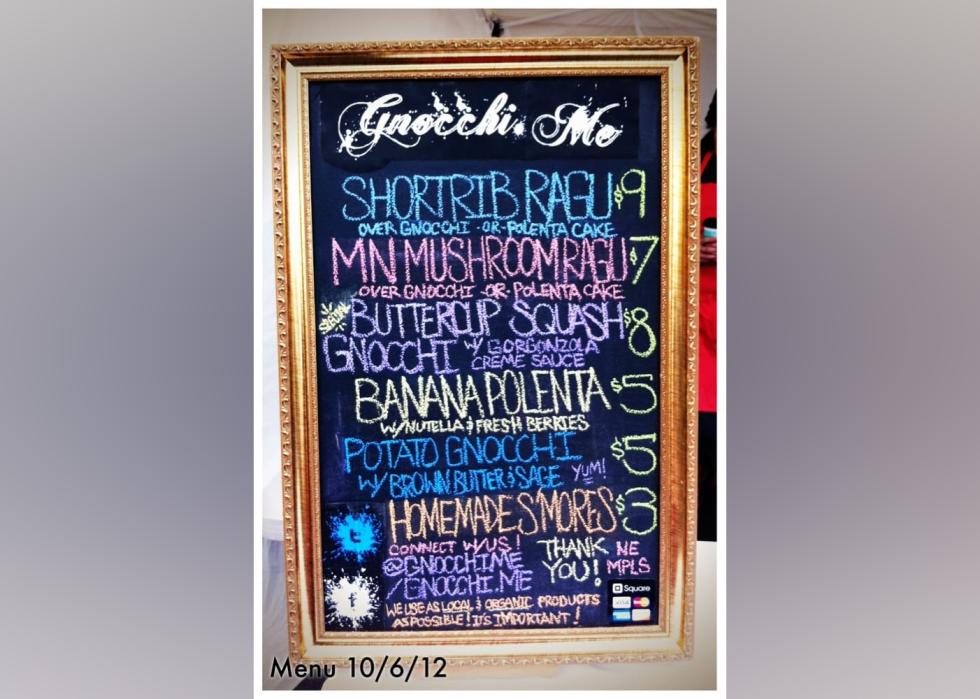 Gnocchi. Me
SHORTRIB RAGU $9
OVER GNOCCHI -OR- POLENTA CAKE
MN MUSHROOM RAGU $7
OVER GNOCCHI -OR- POLENTA CAKE
SPECIAL BUTTERCUP SQUASH $8
GNOCCHI W/ GORGONZOLA
CREME SAUCE
BANANA POLENTA $5
W/NUTELLA & FRESH BERRIES
POTATO GNOCCHI $5
W/ BROWN BUTTER & SAGE YUM!
HOMEMADE S'MORES $3
CONNECT W/US!
@GNOCCHIME
/GNOCCHI.ME
THANK
YOU!
NE
MPLS
t
f
Square
VISA
WE USE AS LOCAL & ORGANIC PRODUCTS
AS POSSIBLE! IT'S IMPORTANT!
Menu 10/6/12